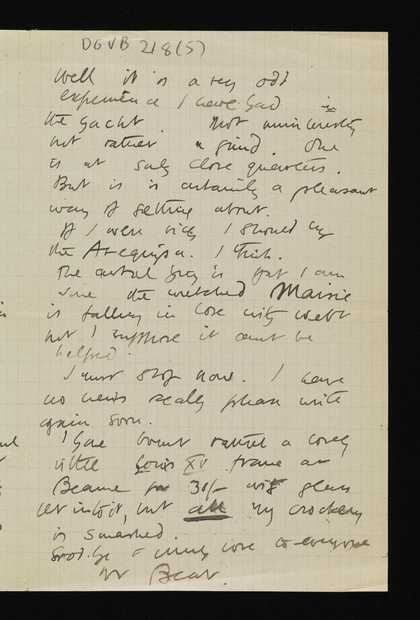 DGVB 2/8(5)
Well it is a very odd
experience I have had in
the yacht. Not uninteresting
but rather a grind. One
is at such close quarters.
But is is certainly a pleasant
way of getting about.
If I were rich I should buy
the Arequipa. I think.
The astral is but I am
sure the wretched Maisie
is falling in love with Webb
but I suppose it cant be
helped.
I must stop now. I have
no news really please write
again soon.
I have bought rather a lovely
little Louis XV frame at
Beaune for 30/- with glass
let into it, but all my crockery
is smashed.
Good bye & much love to everyone
Bear.